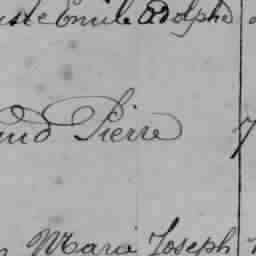 Emile Adolphe
Pierre 7
Mara Joseph